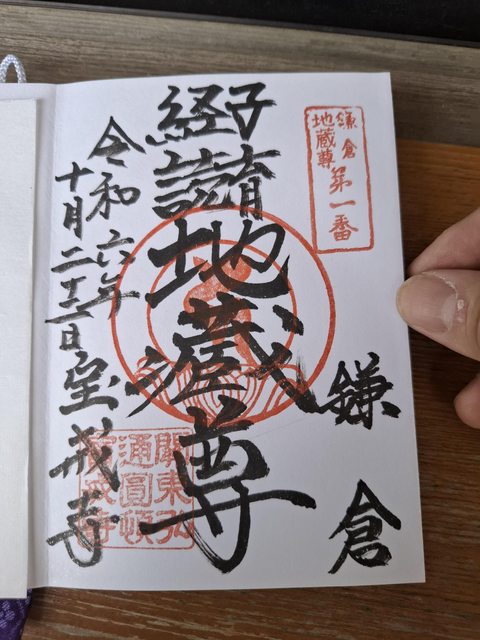 鎌倉
地蔵尊
第一番
鎌倉
子育
経讀
地蔵尊
令和六年
十月二十三日
宝戒寺
關東弘
通圓頓
寳戒寺